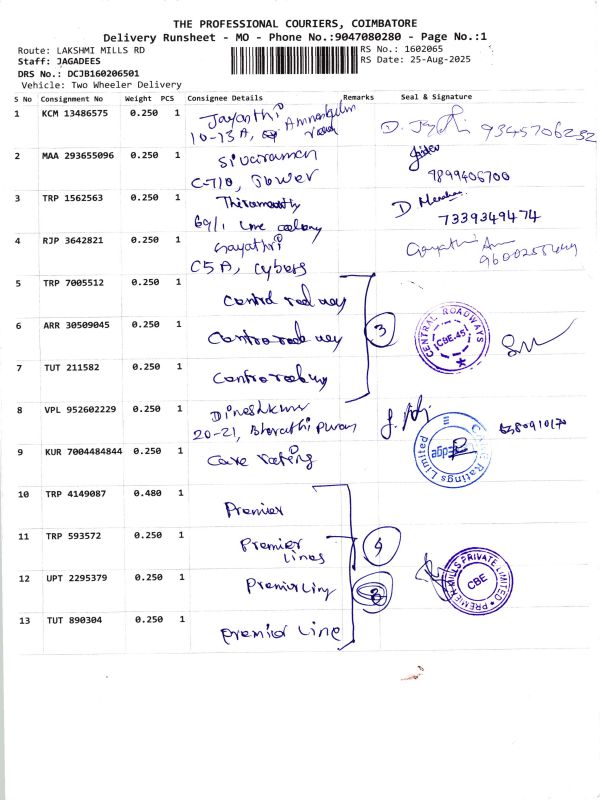 THE PROFESSIONAL COURIERS, COIMBATORE
Delivery Runsheet - MO - Phone No.:9047080280 - Page No.:1
Route: LAKSHMI MILLS RD RS No.: 1602065
Staff: JAGADEES RS Date: 25-Aug-2025
DRS No.: DCJB160206501
Vehicle: Two Wheeler Delivery
S No Consignment No Weight PCS Consignee Details Remarks Seal & Signature
1 KCM 13486575 0.250 1 Jayanthi
10-13A, road 9345706232
2 MAA 293655096 0.250 1 Sivaraman
C-710, Tower 9899406700
3 TRP 1562563 0.250 1
69/1 colony 7339349474
4 RJP 3642821 0.250 1 Gayathri
C5A, Cybers
5 TRP 7005512 0.250 1
6 ARR 30509045 0.250 1
3
CENTRAL ROADWAYS
CBE-45
7 TUT 211582 0.250 1
8 VPL 952602229 0.250 1 Dineshkumr
20-21,
9 KUR 7004484844 0.250 1 Care rating
Ratings Limited
Edge
10 TRP 4149087 0.480 1 Premier
11 TRP 593572 0.250 1 Premier
Lines
4
12 UPT 2295379 0.250 1
PREMIER MILLS PRIVATE LIMITED
CBE
13 TUT 890304 0.250 1 premier Line